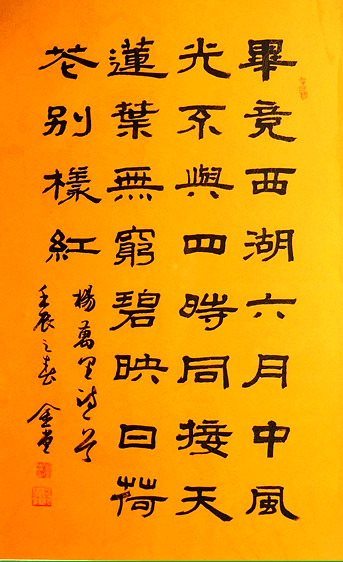 畢竟西湖六月中風
光不與四時同接天
蓮葉無窮碧映日荷
花別樣紅
楊萬里詩
壬辰之春